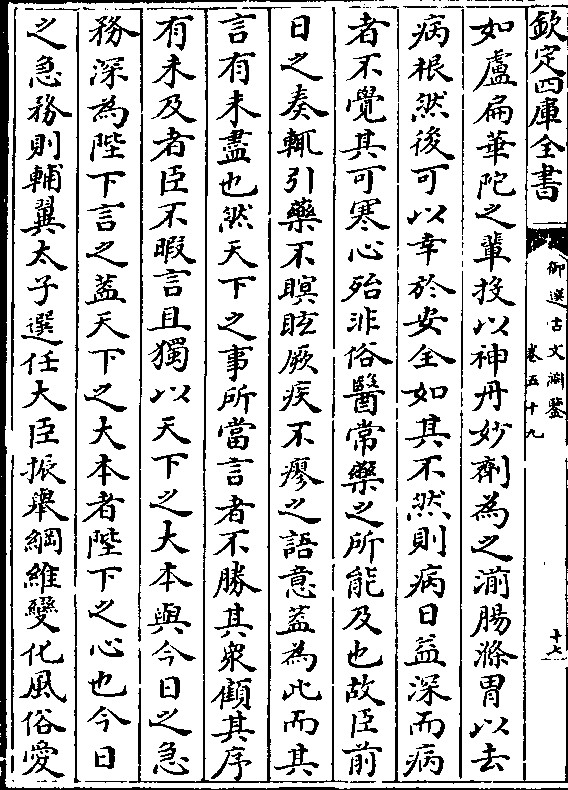 欽定四庫全書
御選古文淵鑒
卷五十九
十七
如盧扁華陀之輩投以神丹妙劑為之湔腸滌胃以去
病根然後可以幸於安全如其不然則病日益深而病
者不覺其可寒心殆非俗醫常藥之所能及也故臣前
日之奏輒引藥不瞑眩厥疾不瘳之語意蓋為此而其
言有未盡也然天下之事所當言者不勝其衆顧其序
有未及者臣不暇言且獨以天下之大本與今日之急
務深為陛下言之蓋天下之大本者陛下之心也今日
之急務則輔翼太子選任大臣振舉綱維變化風俗愛